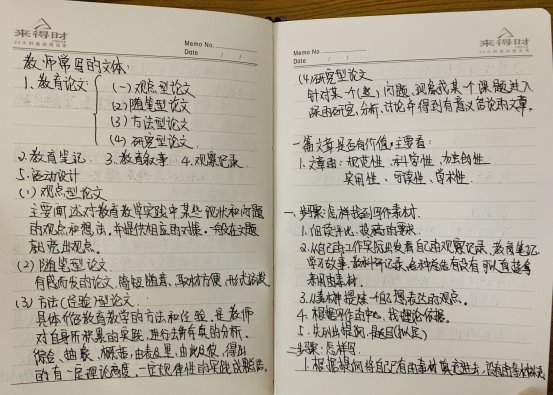 来得财
Memo No.
Date / /
教师常写的文体:
1、教育论文 (一)观点型论文
(2)随笔型论文
(3)方法型论文
(4)研究型论文
2.教育笔记 3.教育叙事 4.观察记录
5.活动设计
(1)观点型论文
主要阐述对教育教学实践中某些现状和问题
的观点和想法,并提供相应的对策。一般在文题
就亮出观点。
(2)随笔型论文
有感而发的论文,简短随意、取材方便、形式活泼
(3)方法(经验)型论文
具体介绍教育教学的方法和经验,是教师
对自身所积累的实践,进行去伪存真的分析、
综合、抽象、概括,由表及里、由此及彼,得出
的有一定理论高度、一定规律性的实践成败报告。
来得财
Memo No.
Date / /
(4)研究型论文
针对某一个(些)问题、现象或某一个课题进入
深入研究、分析、讨论并得到有意义结论的文章。
一篇文章是否有价值,主要看:
1.文章的:规范性、科学性、独创性
实用性、可读性、学术性
一、步骤:怎样找到写作素材
1.
2.从自己的工作实际出发看自己的观察记录、教育笔记
学习故事、教科研记录,
来用的素材。
3.从素材提炼一个你想表达的观点。
4.根据写作的中心,找理论依据。
5.先列出提纲,
二步骤:怎样写
1.根据提纲将自己已有的素材填充进去,